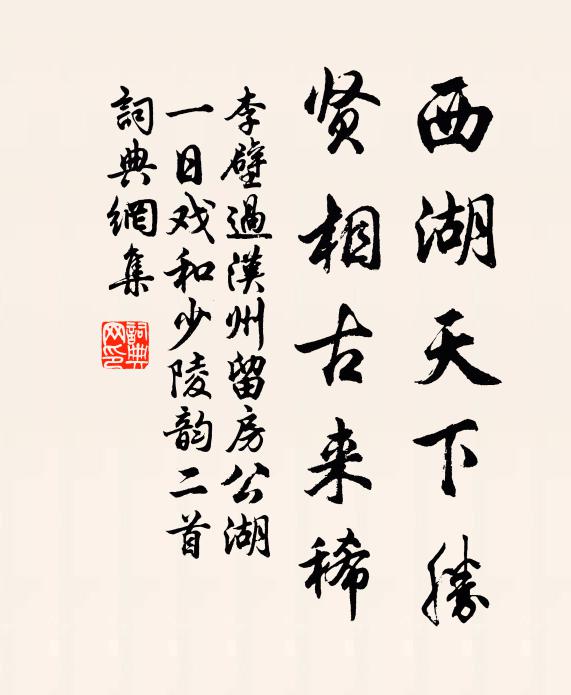 西湖天下勝
贤相古来稀
李壁過漢州留房公湖
一日戏和少陵韵二首
詞典網集
詞典网印